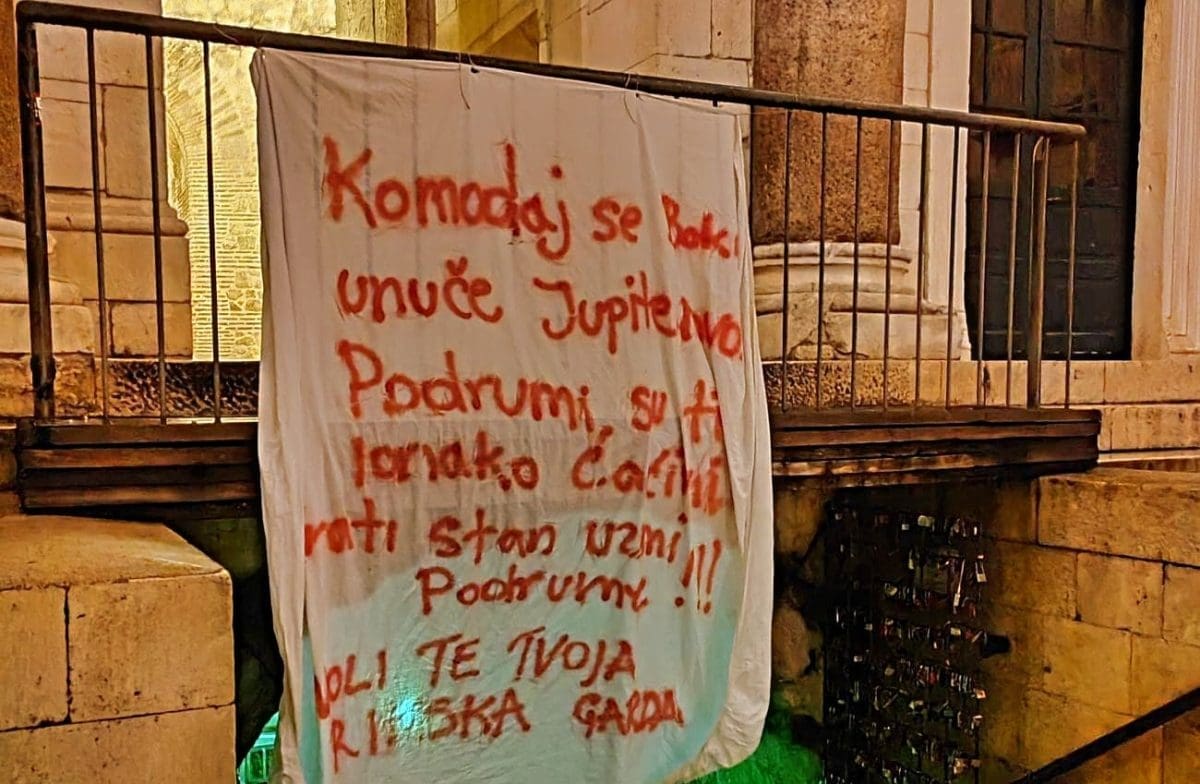 Komodaj se
unuče Jupiterovo.
Podrumi, su ti
Ionako Ćaćini
rati stan uzmi
Podrume !!!
VOLI TE TVOJA
RIMSKA GARDA